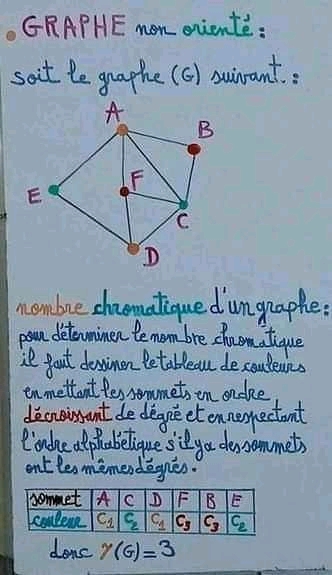 • GRAPHE non orienté :
soit le graphe (G) suivant :
A
B
E
F
C
D
nombre chromatique d'un graphe :
pour déterminer le nombre chromatique
il faut dessiner le tableau de couleurs
en mettant les sommets en ordre
décroissant de dégré et en respectant
l'ordre alphabétique s'il y a des sommets
ont les mêmes dégrés.
sommet A C D F B E
couleur C1 C2 C1 C3 C3 C2
donc γ(G)=3